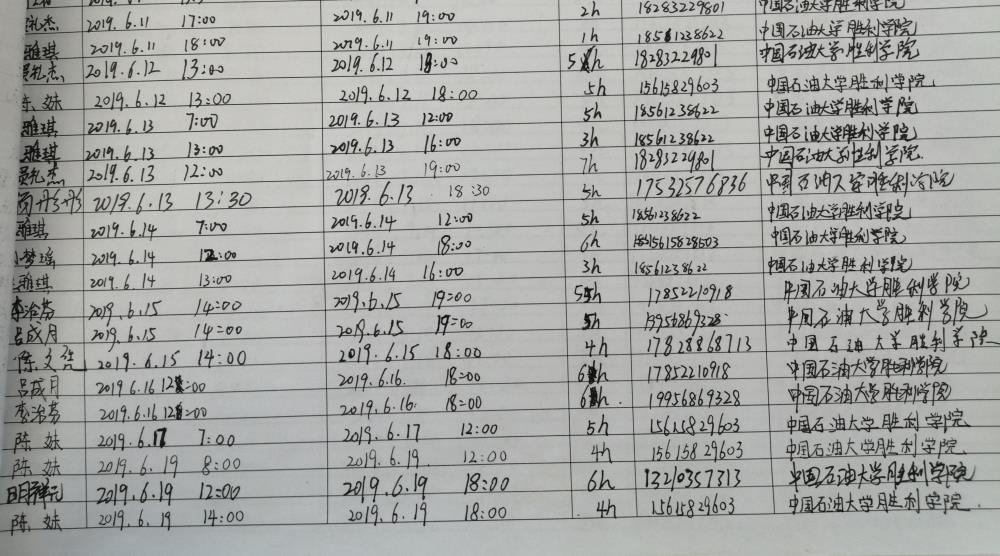 杰 2019.6.11 17:00 2019.6.11 19:00 2h 18283229801 中国石油大学胜利学院
雅琪 2019.6.11 18:00 2019.6.11 19:00 1h 18561238622 中国石油大学胜利学院
杰 2019.6.12 13:00 2019.6.12 18:00 5h 18283229801 中国石油大学胜利学院
陈妹 2019.6.12 13:00 2019.6.12 18:00 5h 15615829603 中国石油大学胜利学院
雅琪 2019.6.13 7:00 2019.6.13 12:00 5h 18561238622 中国石油大学胜利学院
雅琪 2019.6.13 13:00 2019.6.13 16:00 3h 18561238622 中国石油大学胜利学院
杰 2019.6.13 12:00 2019.6.13 19:00 7h 18283229801 中国石油大学胜利学院
丹丹 2019.6.13 13:30 2019.6.13 18:30 5h 17532576836 中国石油大学胜利学院
雅琪 2019.6.14 7:00 2019.6.14 12:00 5h 18561238622 中国石油大学胜利学院
梦瑶 2019.6.14 12:00 2019.6.14 18:00 6h 中国石油大学胜利学院
雅琪 2019.6.14 13:00 2019.6.14 16:00 3h 18561238622 中国石油大学胜利学院
李治芬 2019.6.15 14:00 2019.6.15 19:00 5h 17852210918 中国石油大学胜利学院
吕成月 2019.6.15 14:00 2019.6.15 19:00 5h 19956869328 中国石油大学胜利学院
陈文 2019.6.15 14:00 2019.6.15 18:00 4h 17828868713 中国石油大学胜利学院
吕成月 2019.6.16 12:00 2019.6.16. 18:00 6h 17852210918 中国石油大学胜利学院
李治芬 2019.6.16 12:00 2019.6.16. 18:00 6h. 19956869328 中国石油大学胜利学院
陈妹 2019.6.17 7:00 2019.6.17 12:00 5h 15615829603 中国石油大学胜利学院
陈妹 2019.6.19 8:00 2019.6.19. 12:00 4h 15615829603 中国石油大学胜利学院
2019.6.19 12:00 2019.6.19 18:00 6h 13210357313 中国石油大学胜利学院
陈妹 2019.6.19 14:00 2019.6.19 18:00 4h 15615829603 中国石油大学胜利学院.